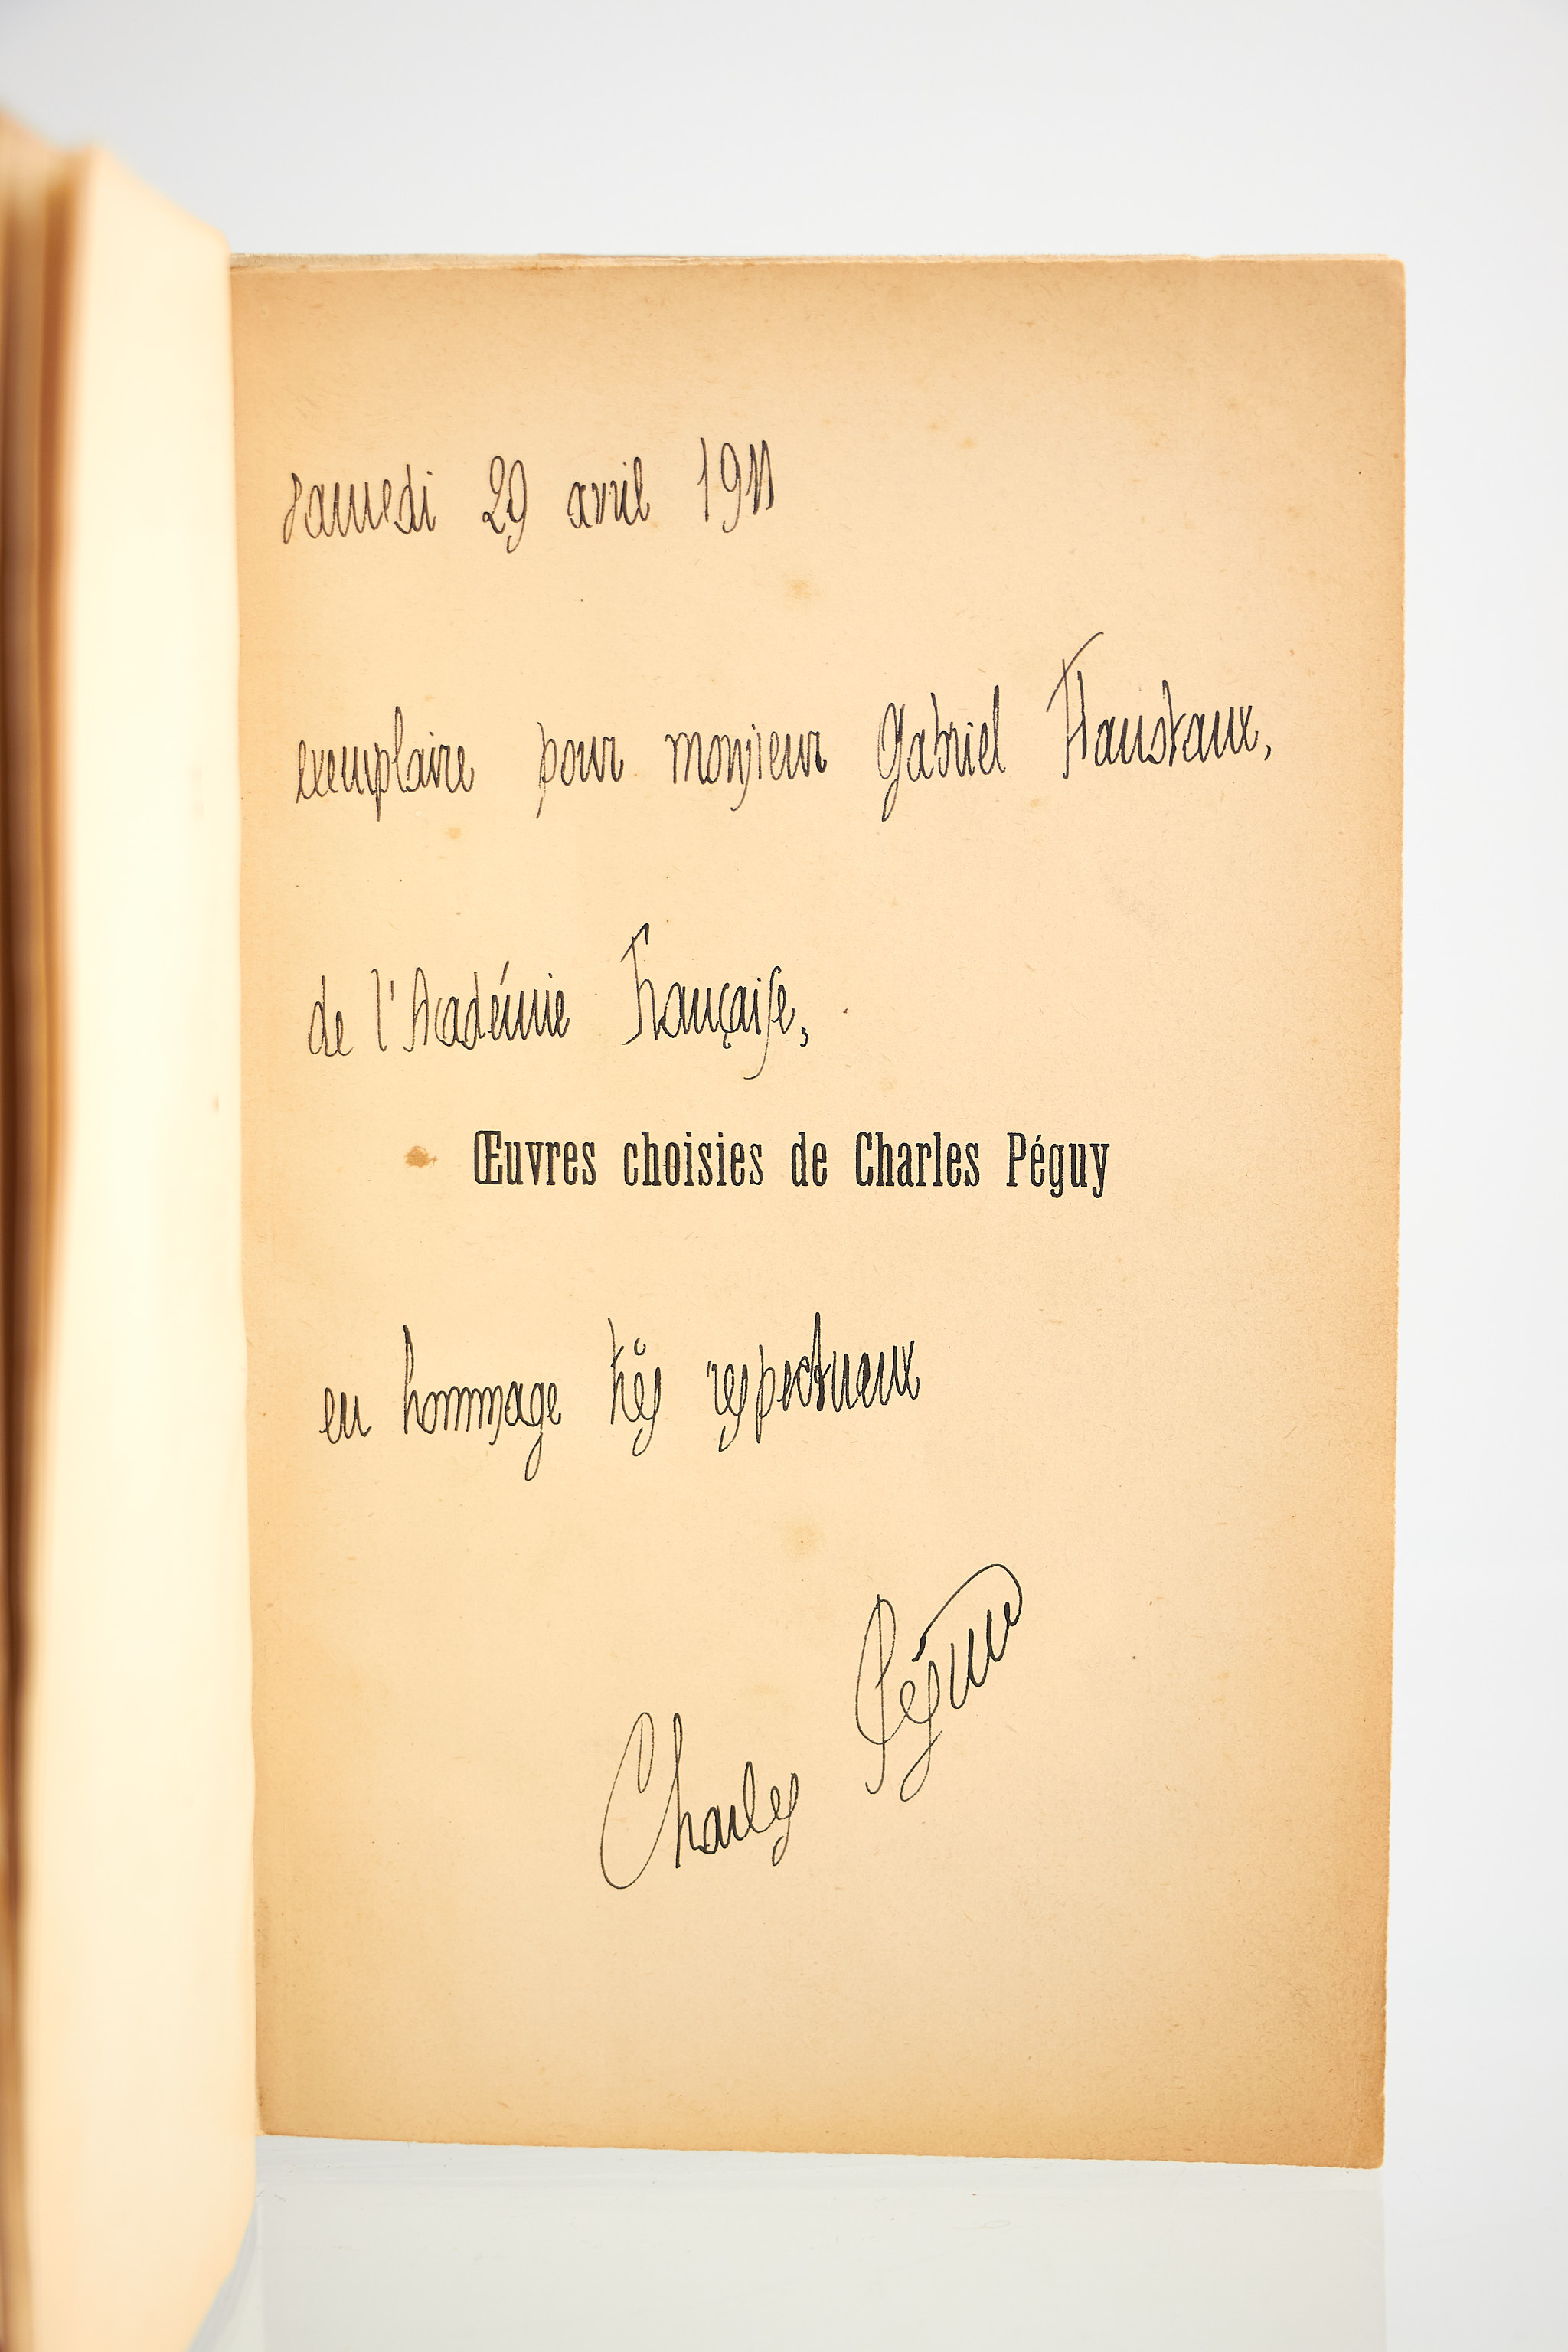 samedi 29 avril 1911
exemplaire pour monsieur Gabriel Hanotaux,
de l'Académie Française,
Œuvres choisies de Charles Péguy
en hommage très respectueux
Charles Péguy